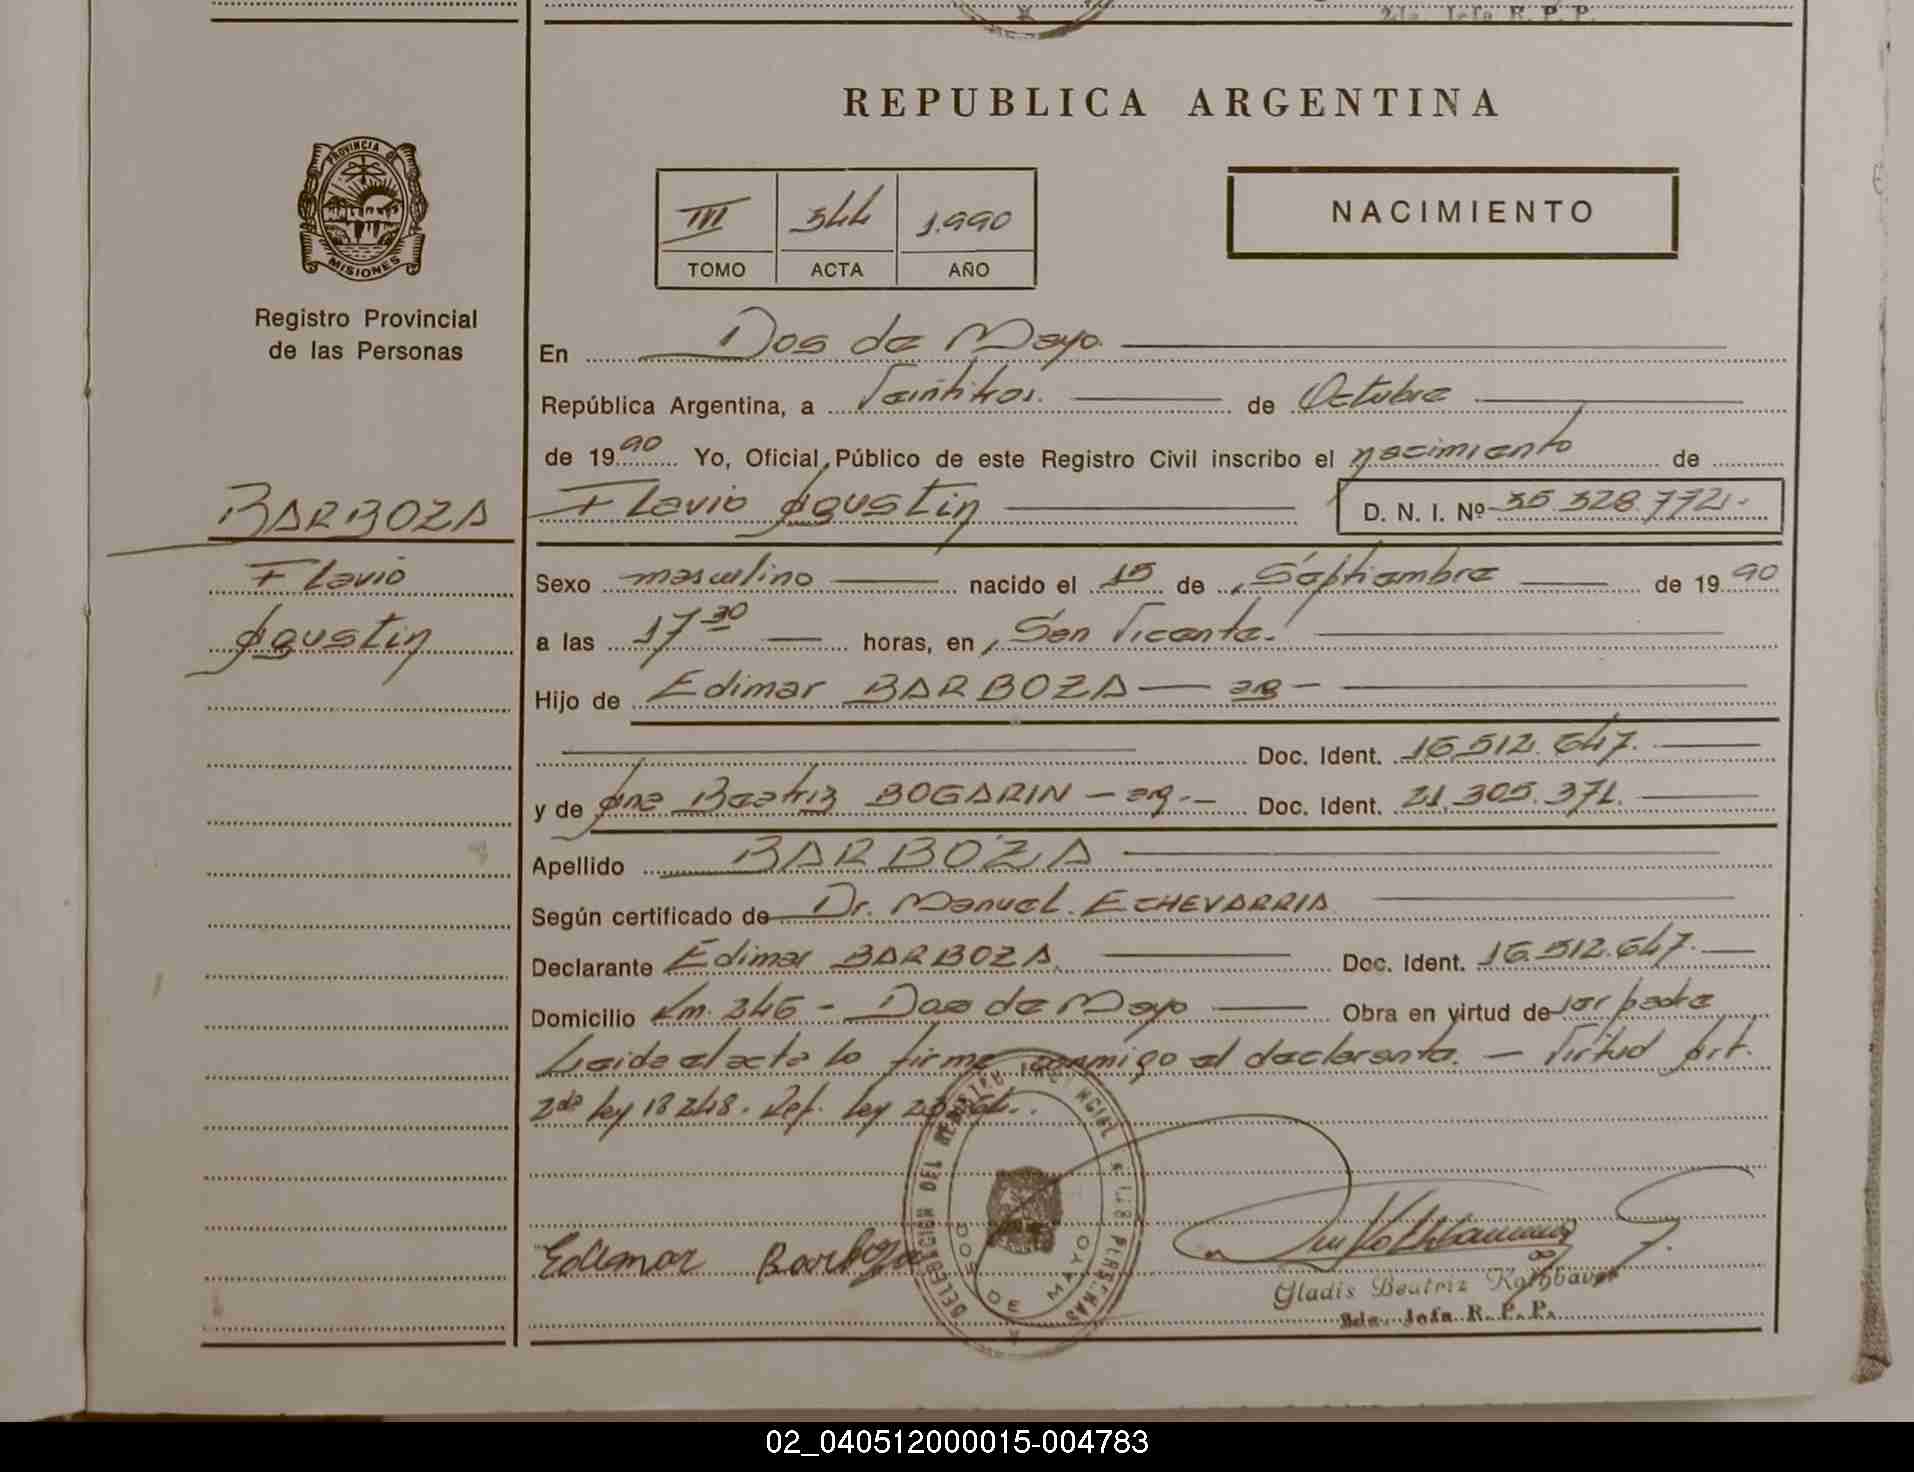 2da. Jefa R. P. P.
REPUBLICA ARGENTINA
PROVINCIA DE
MISIONES
III 344 1.990
TOMO ACTA AÑO
NACIMIENTO
Registro Provincial
de las Personas
En Dos de Mayo.
República Argentina, a Veintitrés. de Octubre
de 1990 Yo, Oficial Público de este Registro Civil inscribo el nacimiento de
BARBOZA
Flavio
Agustin
Flavio Agustin D. N. I. Nº 35.328.772.-
Sexo masculino nacido el 15 de Septiembre de 1990
a las 17 30 horas, en San Vicente.
Hijo de Edimar BARBOZA — arg —
Doc. Ident. 16.512.647.
y de Ana Beatriz BOGARIN — arg.- Doc. Ident. 21.305.371.
Apellido BARBOZA
Según certificado de Dr. Manuel ECHEVARRIA
Declarante Edimar BARBOZA. Doc. Ident. 16.512.647.
Domicilio Km. 246 - Dos de Mayo Obra en virtud de ser padre
Leida el acta la firma conmigo el declarante. — Virtud Art.
2do ley 18248. Ref. ley
DELEGACION DEL REGISTRO PROVINCIAL DE LAS PERSONAS
DOS DE MAYO
Edemar Barboza
Gladis Beatriz Rothbaver
2da. Jefa R. P. P.
02_040512000015-004783